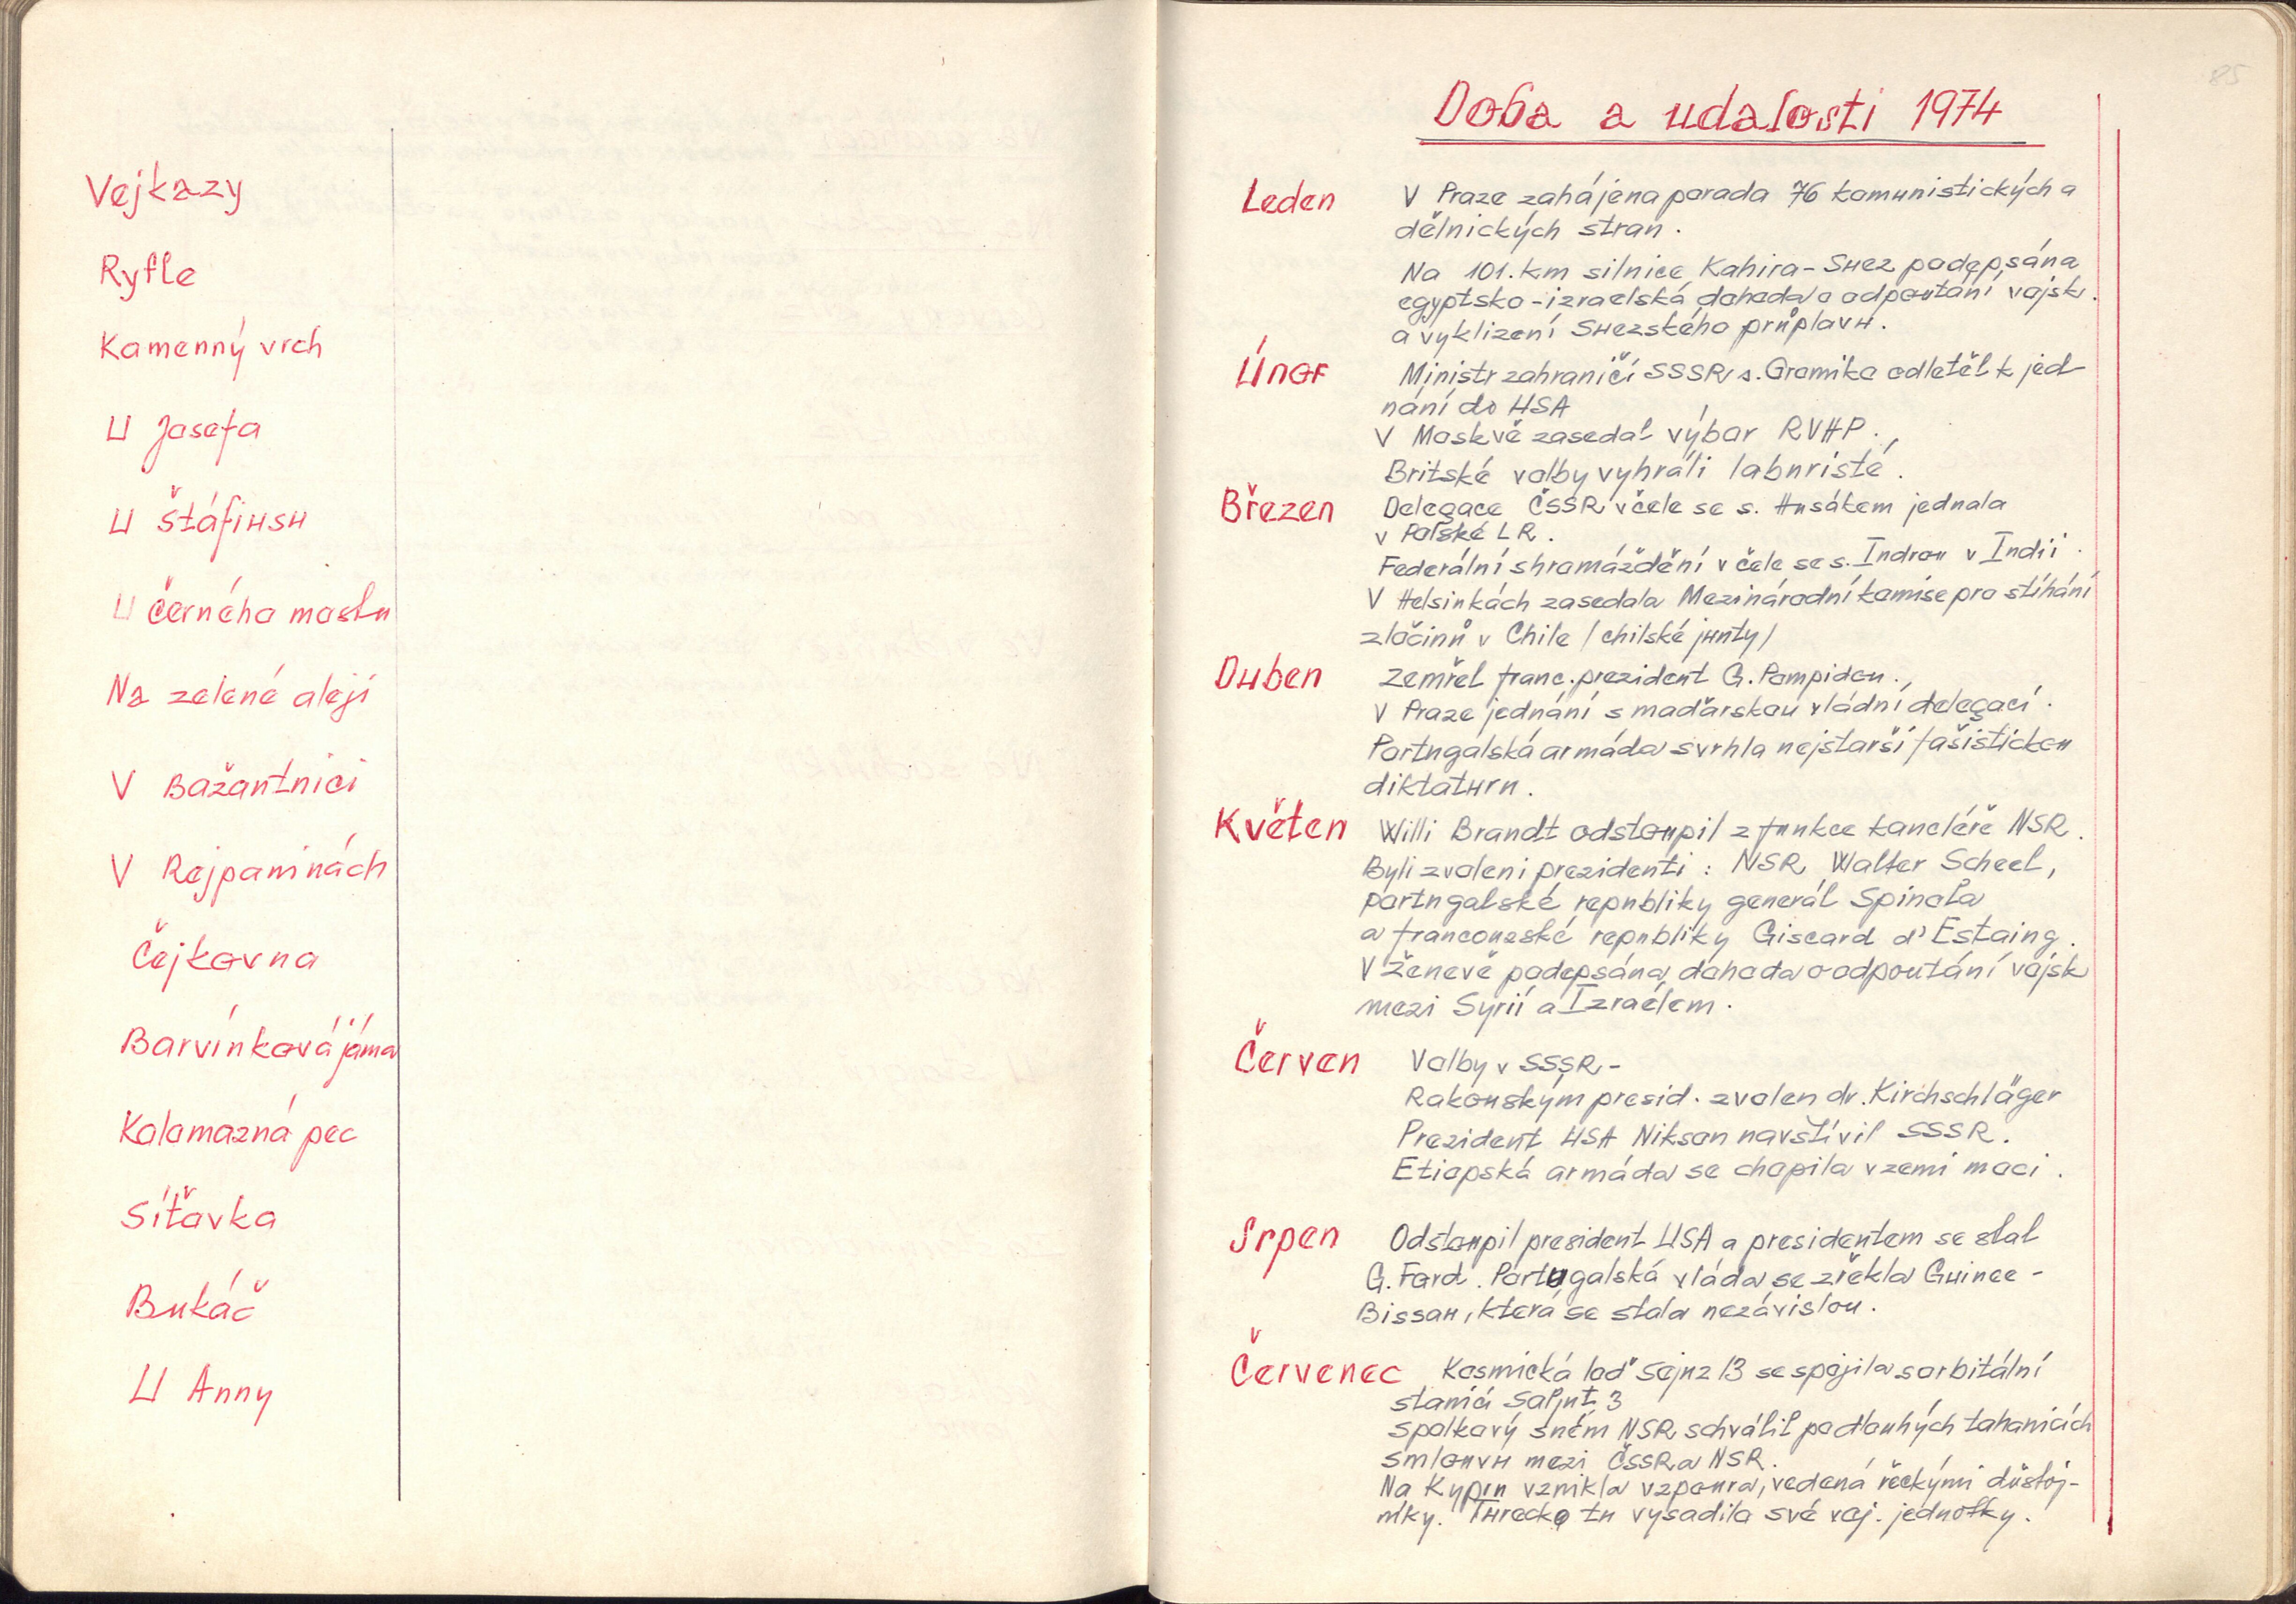 Vejkazy
Ryfle
Kamenný vrch
U Josefa
U Štáfiusu
U Černého mostu
Na zelené aleji
V Bažantnici
V Rejpaninách
Čejkovna
Barvínková jáma
Kolomazná pec
Síťovka
Bukáč
U Anny
85
Doba a udalosti 1974
Leden V Praze zahájena porada 76 komunistických a
dělnických stran.
Na 101. km silnice Kahira - Suez podepsána
egyptsko - izraelská dohoda o odpoutání vojsk
a vyklizení Suezského průplavu.
Únor Ministr zahraničí SSSR s. Gromiko odletěl k jed-
nání do USA
V Moskvě zasedal výbor RVHP.
Britské volby vyhráli labouristé.
Březen Delegace ČSSR v čele se s. Husákem jednala
v Polské LR.
Federální shromáždění v čele se s. Indrou v Indii.
V Helsinkách zasedala Mezinárodní komise pro stíhání
zločinů v Chile / chilské junty /
Duben Zemřel franc. prezident G. Pompidou.
V Praze jednání s maďarskou vládní delegací.
Portugalská armáda svrhla nejstarší fašistickou
diktaturu.
Květen Willi Brandt odstoupil z funkce kancléře NSR.
Byli zvoleni prezidenti: NSR Walter Scheel,
portugalské republiky generál Spinola
a francouzské republiky Giscard d' Estaing.
V Ženevě podepsána dohoda o odpoutání vojsk
mezi Syrií a Izraélem.
Červen Volby v SSSR -
Rakouským presid. zvolen dr. Kirchschläger
Prezident USA Nikson navštívil SSSR.
Etiopská armáda se chopila v zemi moci.
Srpen Odstoupil president USA a presidentem se stal
G. Ford. Portugalská vláda se zřekla Guinee -
Bissau, která se stala nezávislou.
Červenec Kosmická loď Sojuz 13 se spojila s orbitální
stanicí Saljut 3
Spolkový sněm NSR schválil po dlouhých tahanicích
smlouvu mezi ČSSR a NSR.
Na Kypru vznikla vzpoura, vedená řeckými důstoj-
níky. Turecko tu vysadilo své voj. jednotky.